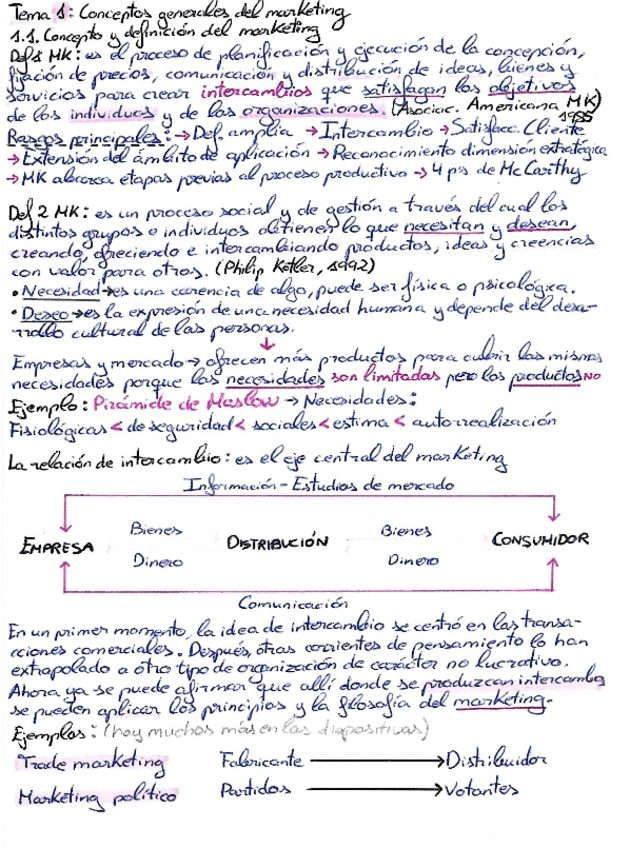 Tema 1: Conceptos generales del marketing
1.1. Concepto y definición del marketing
Def 1 MK: es el proceso de planificación y ejecución de la concepción,
fijación de precios, comunicación y distribución de ideas, bienes y
servicios para crear intercambios que satisfagan los objetivos
de los individuos y de las organizaciones. (Asociac. Americana MK)
1985
Rasgos principales: → Def. amplia → Intercambio → Satisfacc. Cliente
→ Extensión del ámbito de aplicación → Reconocimiento dimensión estratégica
→ MK abarca etapas previas al proceso productivo → 4 p's de McCarthy
Def 2 MK: es un proceso social y de gestión a través del cual los
distintos grupos e individuos obtienen lo que necesitan y desean,
creando, ofreciendo e intercambiando productos, ideas y creencias
con valor para otros. (Philip Kotler, 1992)
• Necesidad → es una carencia de algo, puede ser física o psicológica.
• Deseo → es la expresión de una necesidad humana y depende del desa-
rrollo cultural de las personas.
↓
Empresas y mercado → ofrecen más productos para cubrir las mismas
necesidades porque las necesidades son limitadas pero los productos NO
Ejemplo: Pirámide de Maslow → Necesidades:
Fisiológicas < de seguridad < sociales < estima < autorrealización
La relación de intercambio: es el eje central del marketing
Información - Estudios de mercado
Bienes Bienes
EMPRESA DISTRIBUCIÓN CONSUMIDOR
Dinero Dinero
Comunicación
En un primer momento, la idea de intercambio se centró en las transa-
cciones comerciales. Después, otras corrientes de pensamiento lo han
extrapolado a otro tipo de organización de carácter no lucrativo.
Ahora ya se puede afirmar que allí donde se produzcan intercambios
se pueden aplicar los principios y la filosofía del marketing.
Ejemplos: (hay muchos más en las diapositivas)
Trade marketing Fabricante → Distribuidor
Marketing político Partidos → Votantes